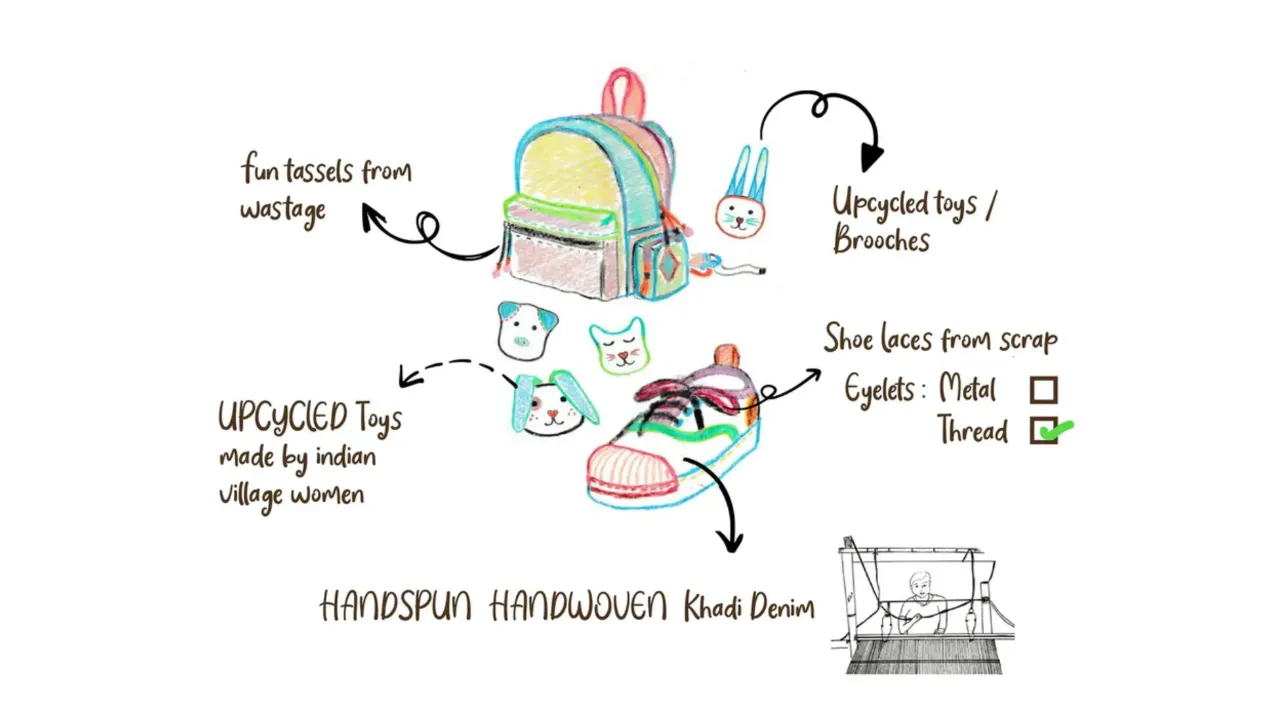 fun tassels from
wastage
Upcycled toys /
Brooches
Shoe laces from scrap
Eyelets : Metal
Thread
UPCYCLED Toys
made by indian
village women
HANDSPUN HANDWOVEN Khadi Denim